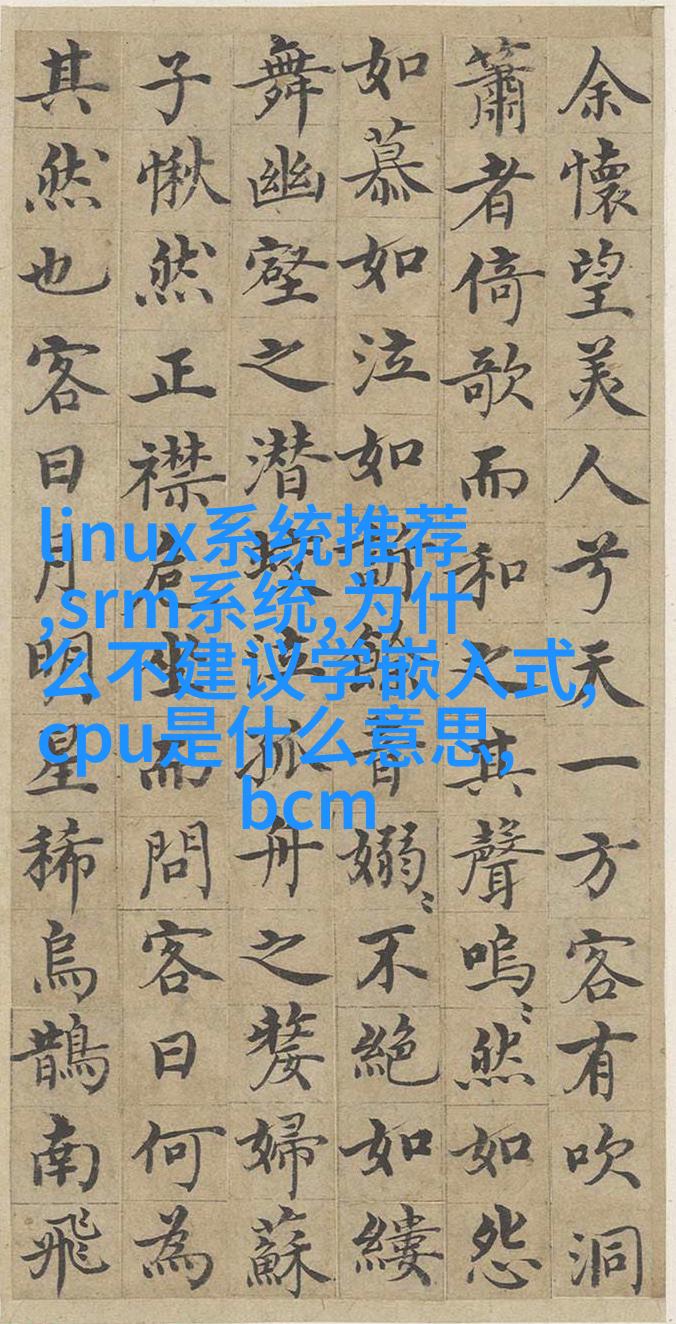 余懷望美人兮天一方客有吹洞
簫者倚歌而和之其聲嗚〻然如怨
如慕如泣如訴餘音嫋〻不絕如縷
舞幽壑之潛蛟泣孤舟之嫠婦蘇
子愀然正襟危坐而問客曰何為
其然也客曰月明星稀烏鵲南飛
linux系统推荐
,srm系统,为什
么不建议学嵌入式,
cpu是什么意思,
bcm